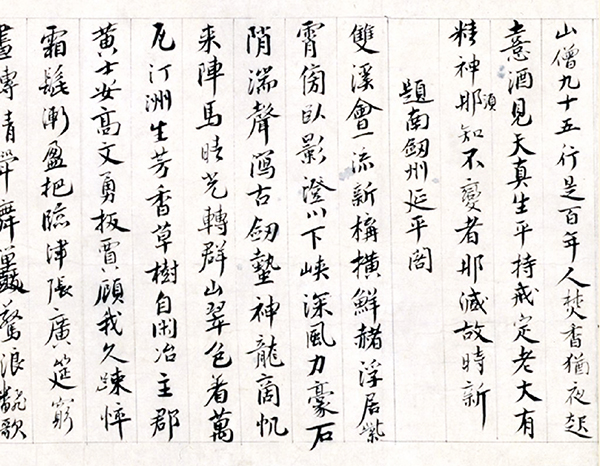 山僧九十五行是百年人焚香猶夜起
憙酒見天真生平持戒定老大有
精神那須知不變者那減故時新
題南劔州延平閣
雙溪會一流新構橫鮮赭浮居紫
霄傍臥影澄川下峽深風力豪石
陗湍聲瀉古劔蟄神龍商帆
来陣馬晴光轉群山翠色着萬
瓦汀洲生芳香草樹自閑冶主郡
黄士安高文勇扳賈顧我久疎悴
霜髭漸盈把臨津張廣筵窮
晝傳清斝舞鼉驚浪翻歌